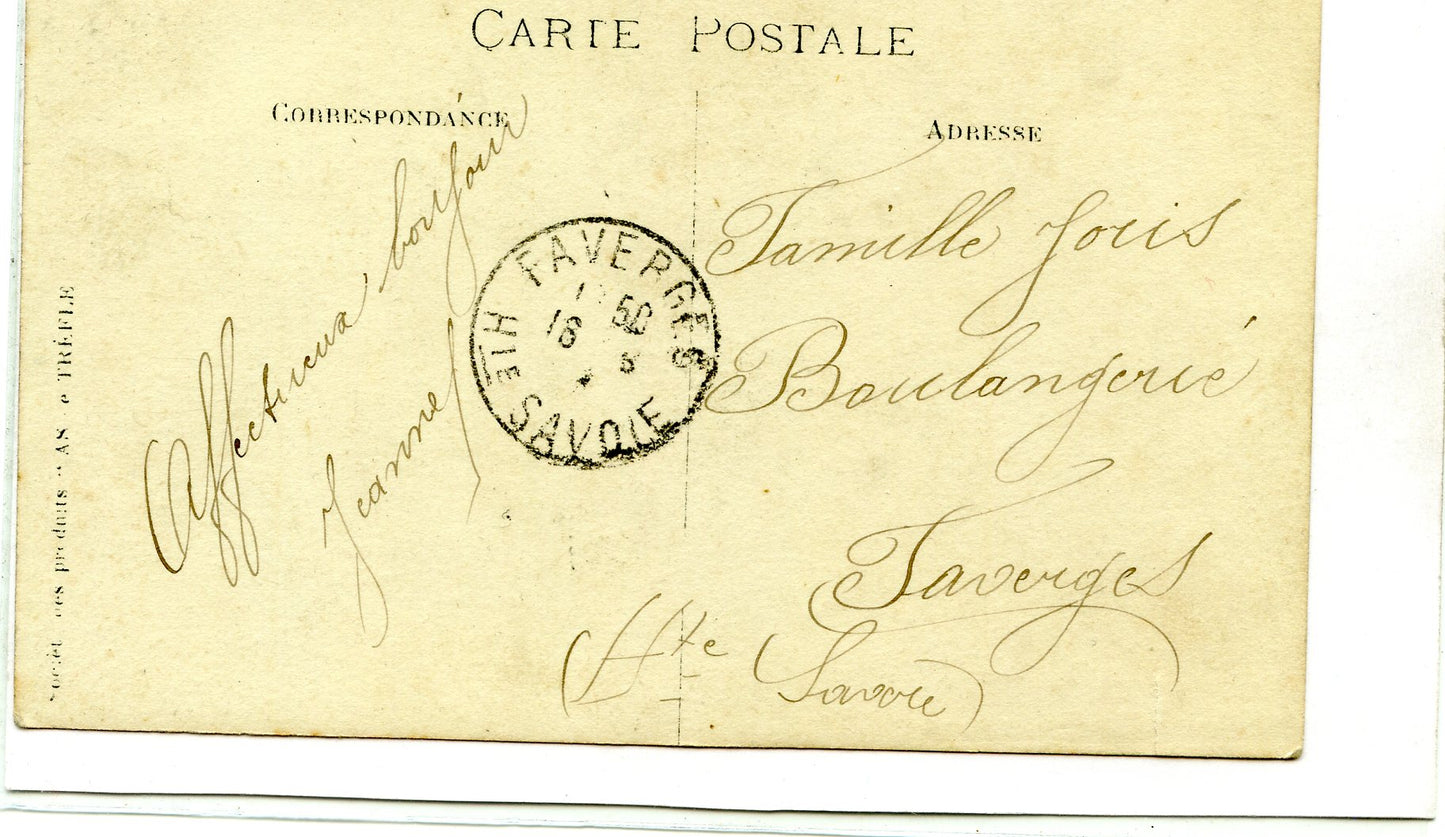 CARTE POSTALE
CORRESPONDANCE
ADRESSE
Affectueux bonjour
Jeanne
FAVERGES
18 50
HTE SAVOIE
Famille Joris
Boulangerie
Faverges
(Hte Savoie)
produits "AS de TRÈFLE